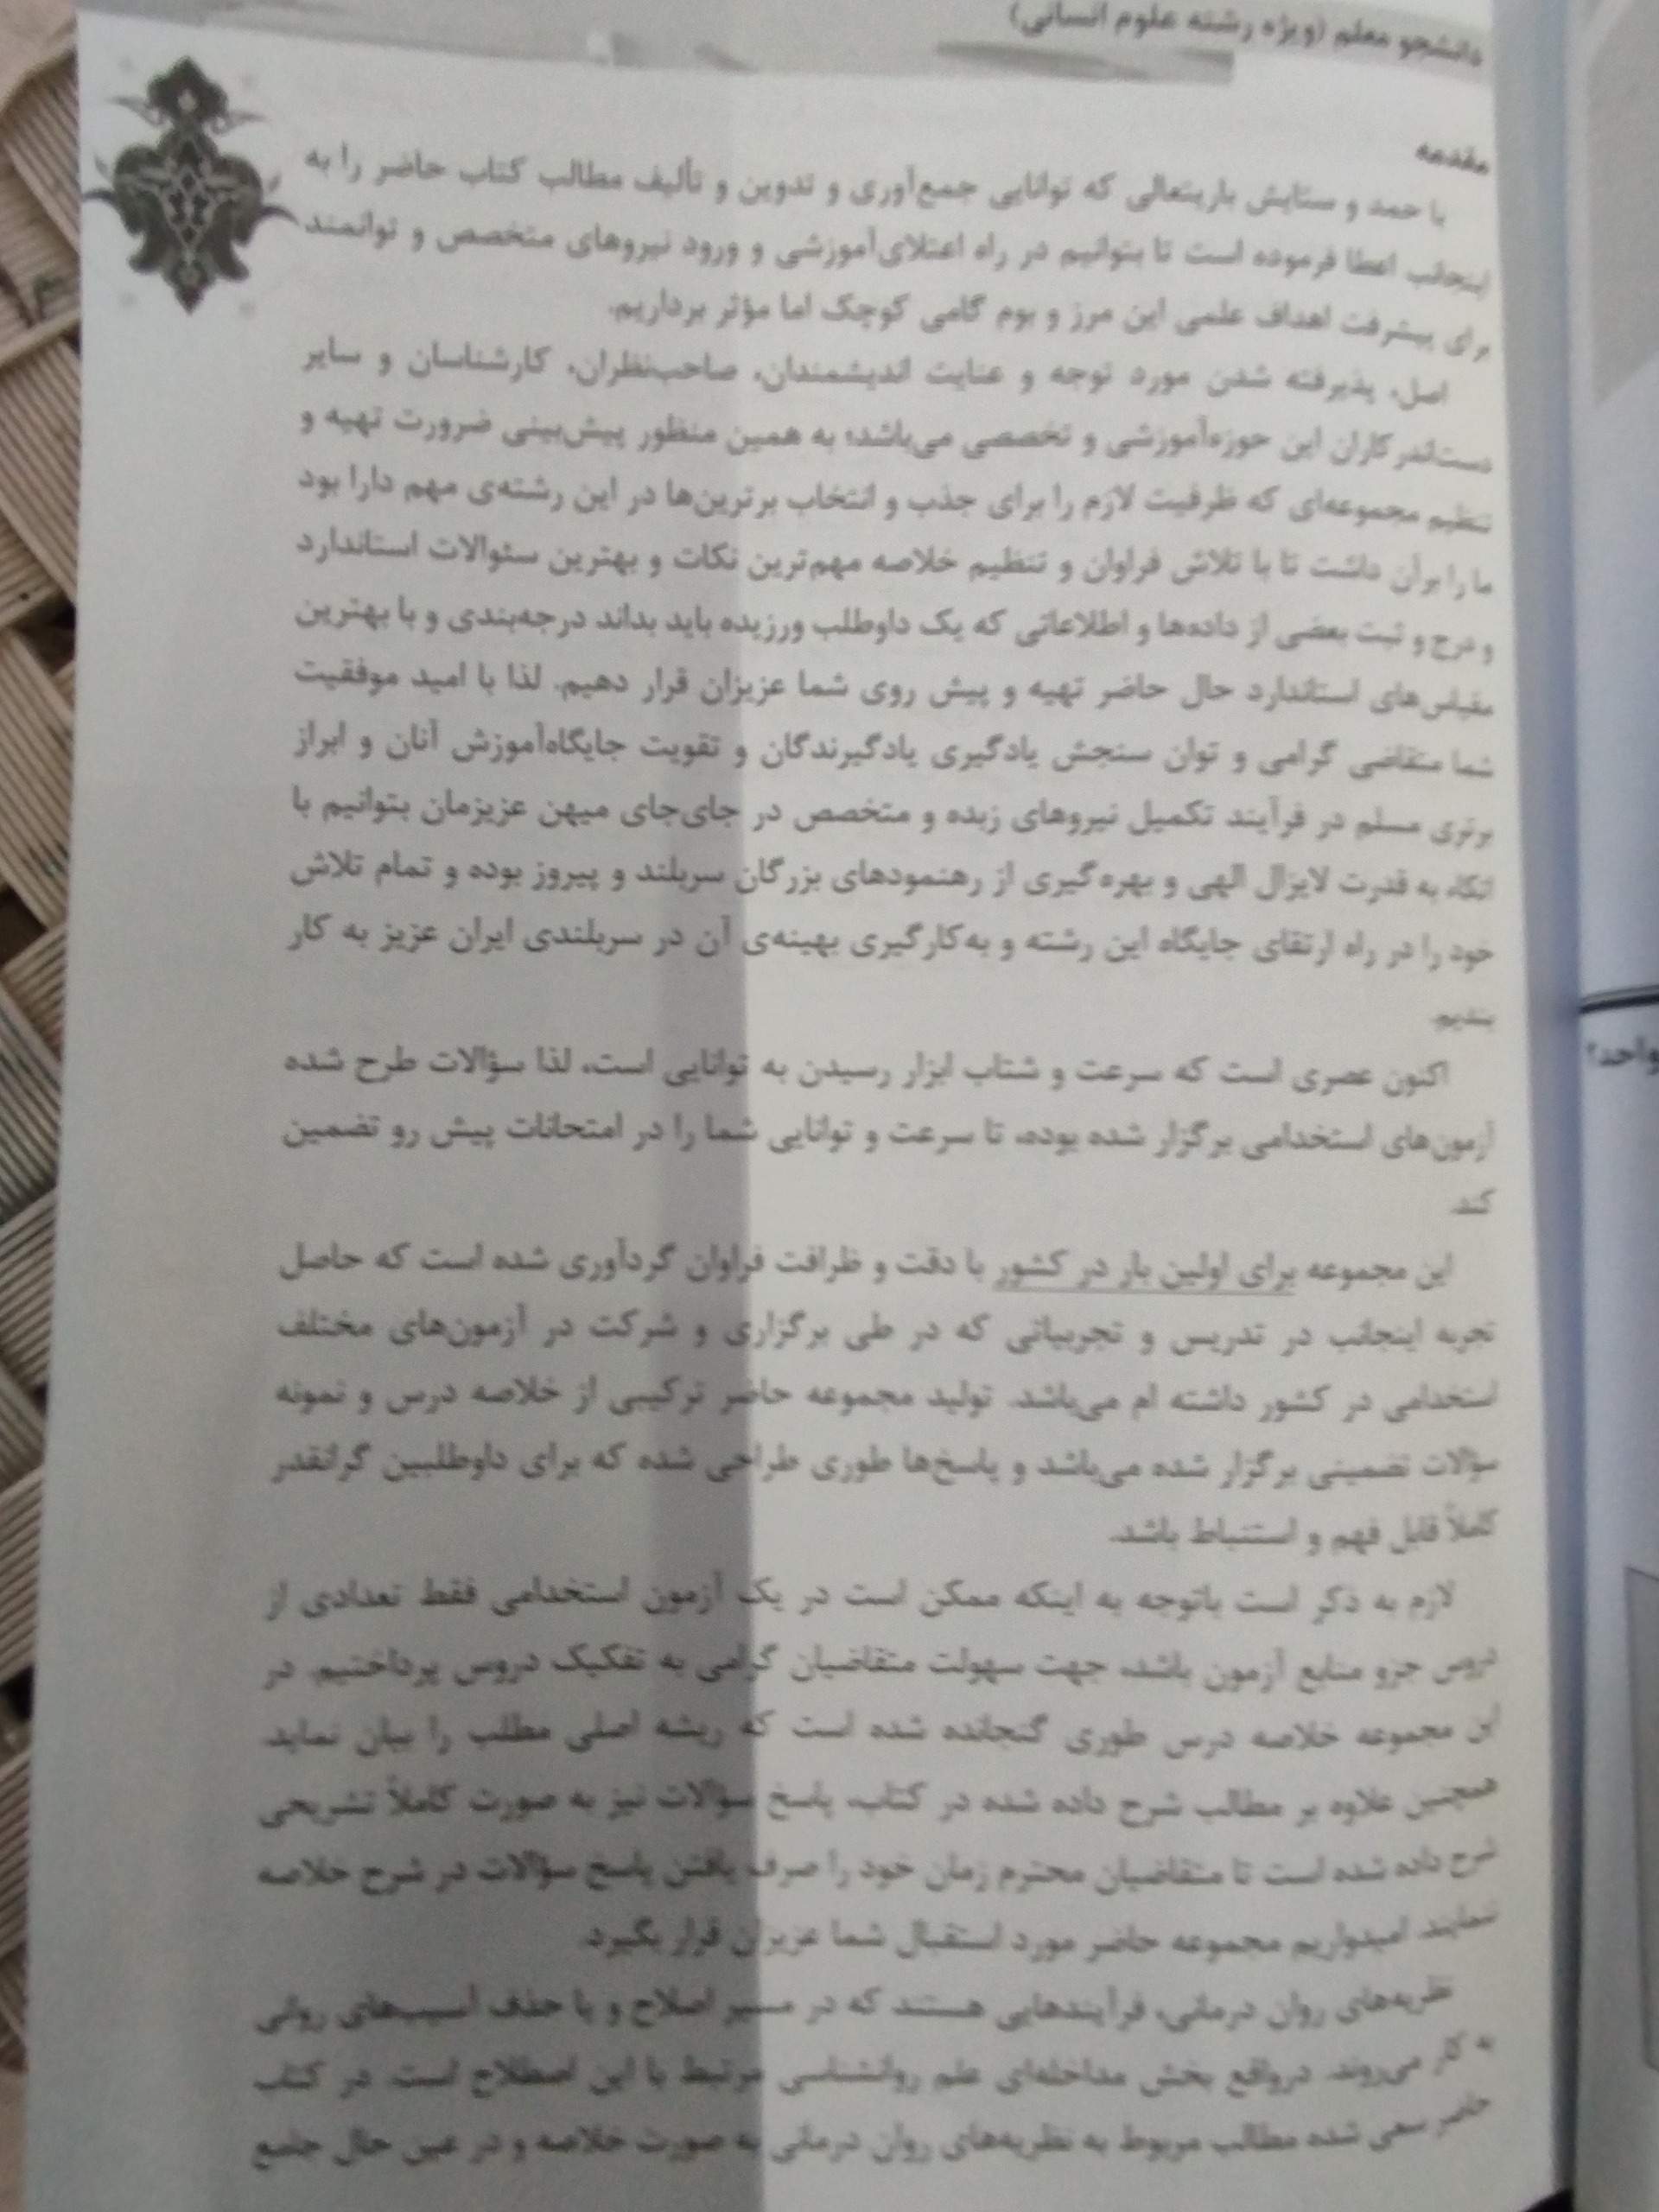 دانشجو معلم (ویژه رشته علوم انسانی)
مقدمه
با حمد و ستایش باریتعالی که توانایی جمع‌آوری و تدوین و تألیف مطالب کتاب حاضر را به
اینجانب اعطا فرموده است تا بتوانیم در راه اعتلای‌آموزشی و ورود نیروهای متخصص و توانمند
برای پیشرفت اهداف علمی این مرز و بوم گامی کوچک اما مؤثر برداریم.
اصل، پذیرفته شدن مورد توجه و عنایت اندیشمندان، صاحب‌نظران، کارشناسان و سایر
دست‌اندرکاران این حوزه‌آموزشی و تخصصی می‌باشد؛ به همین منظور پیش‌بینی ضرورت تهیه و
تنظیم مجموعه‌ای که ظرفیت لازم را برای جذب و انتخاب برترین‌ها در این رشته‌ی مهم دارا بود
ما را برآن داشت تا با تلاش فراوان و تنظیم خلاصه مهم‌ترین نکات و بهترین سئوالات استاندارد
و درج و ثبت بعضی از داده‌ها و اطلاعاتی که یک داوطلب ورزیده باید بداند درجه‌بندی و با بهترین
مقیاس‌های استاندارد حال حاضر تهیه و پیش روی شما عزیزان قرار دهیم. لذا با امید موفقیت
شما متقاضی گرامی و توان سنجش یادگیری یادگیرندگان و تقویت جایگاه‌آموزش آنان و ابراز
برتری مسلم در فرآیند تکمیل نیروهای زبده و متخصص در جای‌جای میهن عزیزمان بتوانیم با
اتکاء به قدرت لایزال الهی و بهره‌گیری از رهنمودهای بزرگان سربلند و پیروز بوده و تمام تلاش
خود را در راه ارتقای جایگاه این رشته و به‌کارگیری بهینه‌ی آن در سربلندی ایران عزیز به کار
بندیم.
اکنون عصری است که سرعت و شتاب ابزار رسیدن به توانایی است، لذا سؤالات طرح شده
آزمون‌های استخدامی برگزار شده بوده، تا سرعت و توانایی شما را در امتحانات پیش رو تضمین
کند.
این مجموعه برای اولین بار در کشور با دقت و ظرافت فراوان گردآوری شده است که حاصل
تجربه اینجانب در تدریس و تجربیاتی که در طی برگزاری و شرکت در آزمون‌های مختلف
استخدامی در کشور داشته ام می‌باشد. تولید مجموعه حاضر ترکیبی از خلاصه درس و نمونه
سؤالات تضمینی برگزار شده می‌باشد و پاسخ‌ها طوری طراحی شده که برای داوطلبین گرانقدر
کاملاً قابل فهم و استنباط باشد.
لازم به ذکر است باتوجه به اینکه ممکن است در یک آزمون استخدامی فقط تعدادی از
دروس جزو منابع آزمون باشد، جهت سهولت متقاضیان گرامی به تفکیک دروس پرداختیم. در
این مجموعه خلاصه درس طوری گنجانده شده است که ریشه اصلی مطلب را بیان نماید.
همچنین علاوه بر مطالب شرح داده شده در کتاب، پاسخ سؤالات نیز به صورت کاملاً تشریحی
شرح داده شده است تا متقاضیان محترم زمان خود را صرف یافتن پاسخ سؤالات در شرح خلاصه
ننمایند. امیدواریم مجموعه حاضر مورد استقبال شما عزیزان قرار بگیرد.
نظریه‌های روان درمانی، فرآیندهایی هستند که در مسیر اصلاح و یا حذف آسیب‌های روانی
به کار می‌روند. درواقع بخش مداخله‌ای علم روانشناسی مرتبط با این اصطلاح است. در کتاب
حاضر سعی شده مطالب مربوط به نظریه‌های روان درمانی به صورت خلاصه و در عین حال جامع
واحد؟